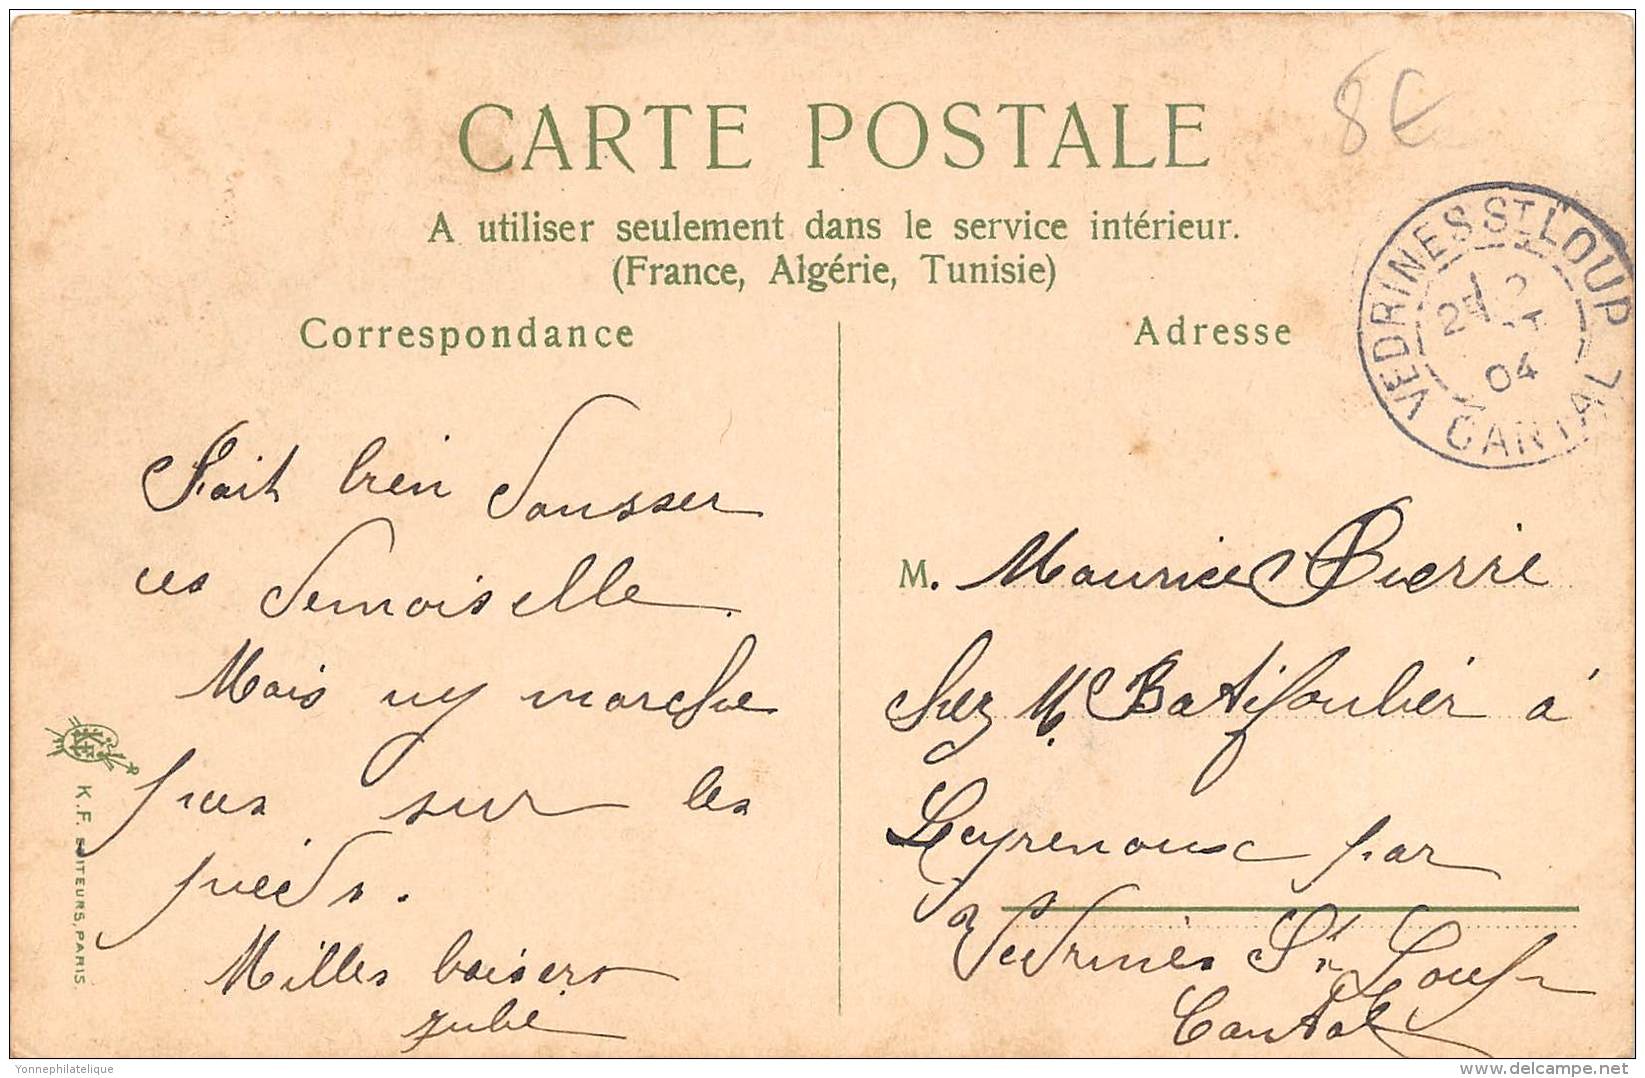 CARTE POSTALE
8€
A utiliser seulement dans le service intérieur.
(France, Algérie, Tunisie)
Correspondance
Adresse
VEDRINES ST LOUP
04
CANTAL
Fait bien dansser
ces demoiselle.
Mais n'y marche
pas sur les
pieds.
Milles baisers
M. Maurice Pierre
chez M. Batifoulier à
Leyrenoux par
Vedrines St Loup
Cantal
K.F. EDITEURS, PARIS
Yonnephilatelique
delcampe.net